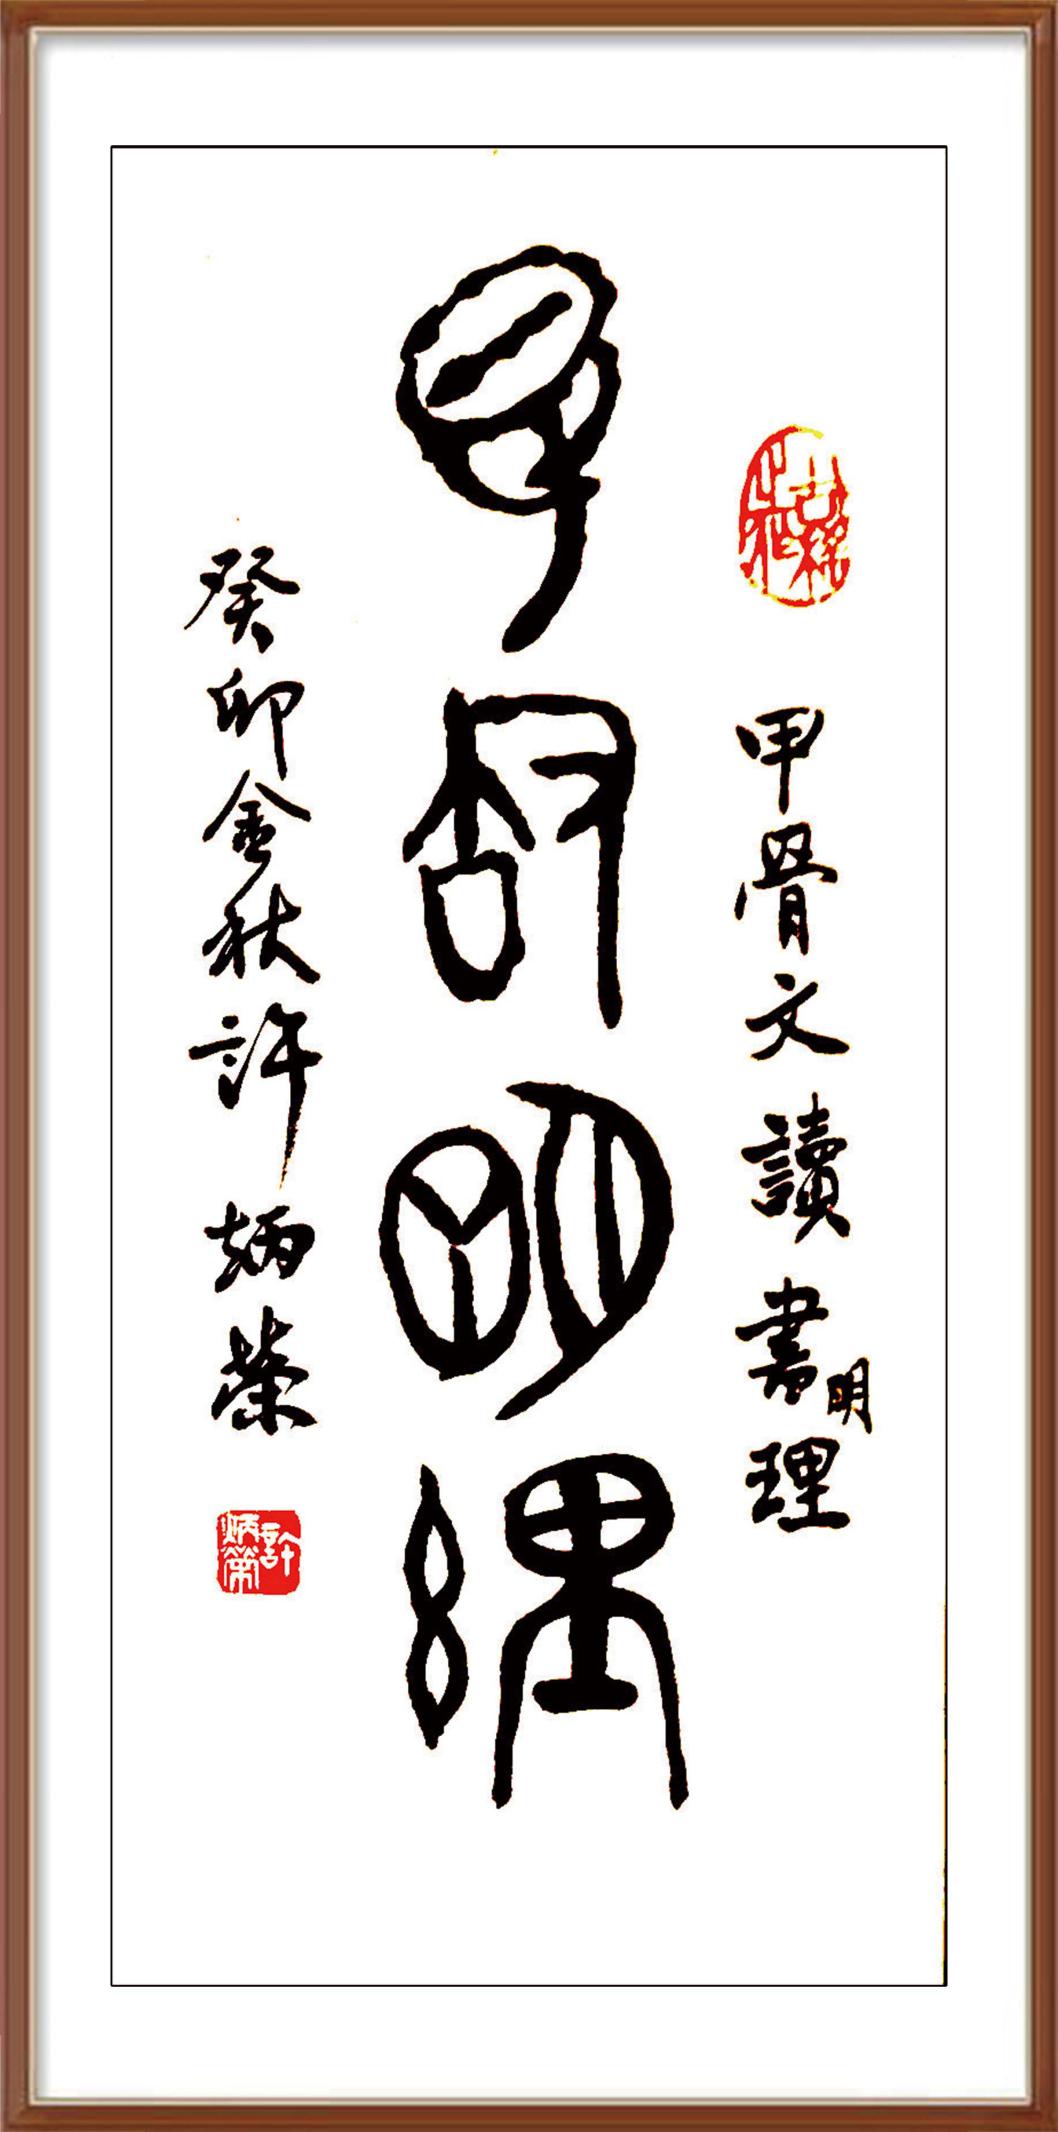 甲骨文讀書明理
讀書明理
癸卯金秋許炳榮
許炳榮